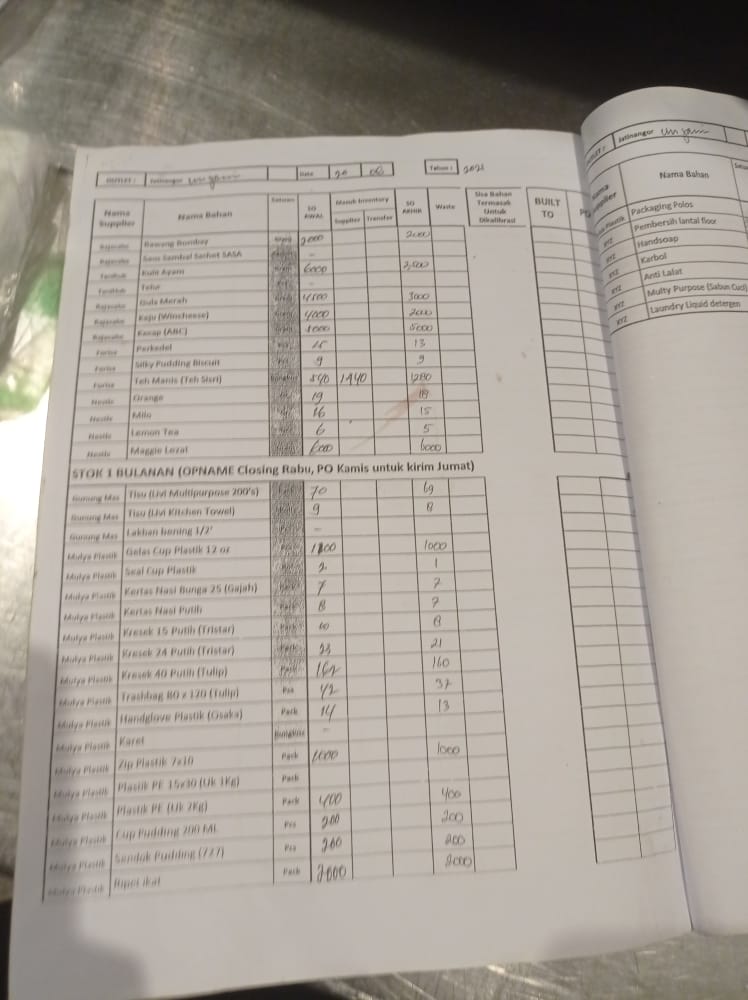 OUTLET : Jatinangor Date 20 06 Tahun : 2021
Nama Supplier Nama Bahan Satuan SO AWAL Masuk Inventory Supplier Transfer SO AKHIR Waste Sisa Bahan Termasuk Untuk Dikalibrasi BUILT TO
Bawang Bombay 2000 2000
Saus Sambal Sachet SASA -
Kulit Ayam 6000 3,500
Telur -
Gula Merah 4500 3000
Keju (Wincheese) 4000 2000
Kecap (ABC) 5000
Perkedel 15 13
Silky Pudding Biscuit 9 9
Teh Manis (Teh Sisri) 1440 1280
Nestle Orange 19 18
Nestle Milo 16 15
Nestle Lemon Tea 6 5
Nestle Maggie Lezat 6000 6000
STOK 1 BULANAN (OPNAME Closing Rabu, PO Kamis untuk kirim Jumat)
Gunung Mas Tisu (Livi Multipurpose 200's) 70 69
Gunung Mas Tisu (Livi Kitchen Towel) 9 8
Gunung Mas Lakban bening 1/2' -
Mulya Plastik Gelas Cup Plastik 12 oz 1000
Mulya Plastik Seal Cup Plastik 2 1
Mulya Plastik Kertas Nasi Bunga 25 (Gajah) 7 7
Mulya Plastik Kertas Nasi Putih 8 7
Mulya Plastik Kresek 15 Putih (Tristar) 8
Mulya Plastik Kresek 24 Putih (Tristar) 23 21
Mulya Plastik Kresek 40 Putih (Tulip) 162 160
Mulya Plastik Trashbag 80 x 120 (Tulip) Pcs 37
Mulya Plastik Handglove Plastik (Osaka) Pack 14 13
Mulya Plastik Karet Bungkus -
Mulya Plastik Zip Plastik 7x10 Pack 1000 1000
Mulya Plastik Plastik PE 15x30 (Uk 1Kg) Pack
Mulya Plastik Plastik PE (Uk 2Kg) Pack 400 400
Mulya Plastik Cup Pudding 200 ML Pcs 200 200
Mulya Plastik Sendok Pudding (777) Pcs 200 200
Mulya Plastik Ripet ikat Pack 2000 2000
OUTLET : Jatinangor
Nama Supplier Nama Bahan
Plastik Packaging Polos
XYZ Pembersih lantai floor
XYZ Handsoap
XYZ Karbol
XYZ Anti Lalat
XYZ Multy Purpose (Sabun Cuci)
XYZ Laundry Liquid detergen